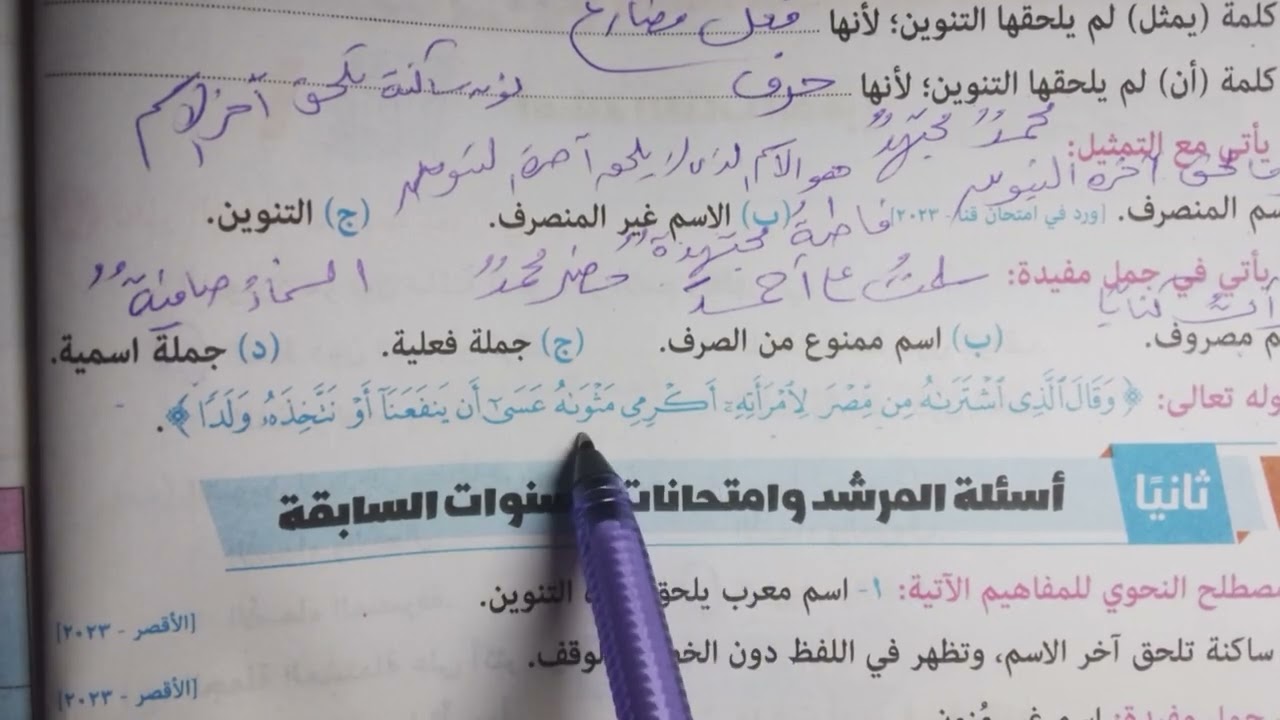 كلمة (يمثل) لم يلحقها التنوين؛ لأنها فعل مضارع
كلمة (أن) لم يلحقها التنوين؛ لأنها حرف
نون ساكنة تلحق آخر الاسم
يأتي مع التمثيل: محمدٌ مجتهدٌ
هو الاسم الذي لا يلحق آخره التنوين
آخره التنوين
سم المنصرف. [ورد في امتحان قنا - ٢٠٢٣] (ب) الاسم غير المنصرف. (ج) التنوين.
فاطمةُ مجتهدةٌ
يأتي في جمل مفيدة:
حضر محمدٌ
السماءُ صافيةٌ
م مصروف. (ب) اسم ممنوع من الصرف. (ج) جملة فعلية. (د) جملة اسمية.
وله تعالى: ﴿وَقَالَ ٱلَّذِى ٱشْتَرَىٰهُ مِن مِّصْرَ لِٱمْرَأَتِهِۦٓ أَكْرِمِى مَثْوَىٰهُ عَسَىٰٓ أَن يَنفَعَنَآ أَوْ نَتَّخِذَهُۥ وَلَدًا﴾.
ثانيًا أسئلة المرشد وامتحانات السنوات السابقة
مصطلح النحوي للمفاهيم الآتية: ١- اسم معرب يلحق التنوين. [الأقصر - ٢٠٢٣]
ساكنة تلحق آخر الاسم، وتظهر في اللفظ دون الخط والوقف. [الأقصر - ٢٠٢٣]
جمل مفيدة: اسم غير مُنون